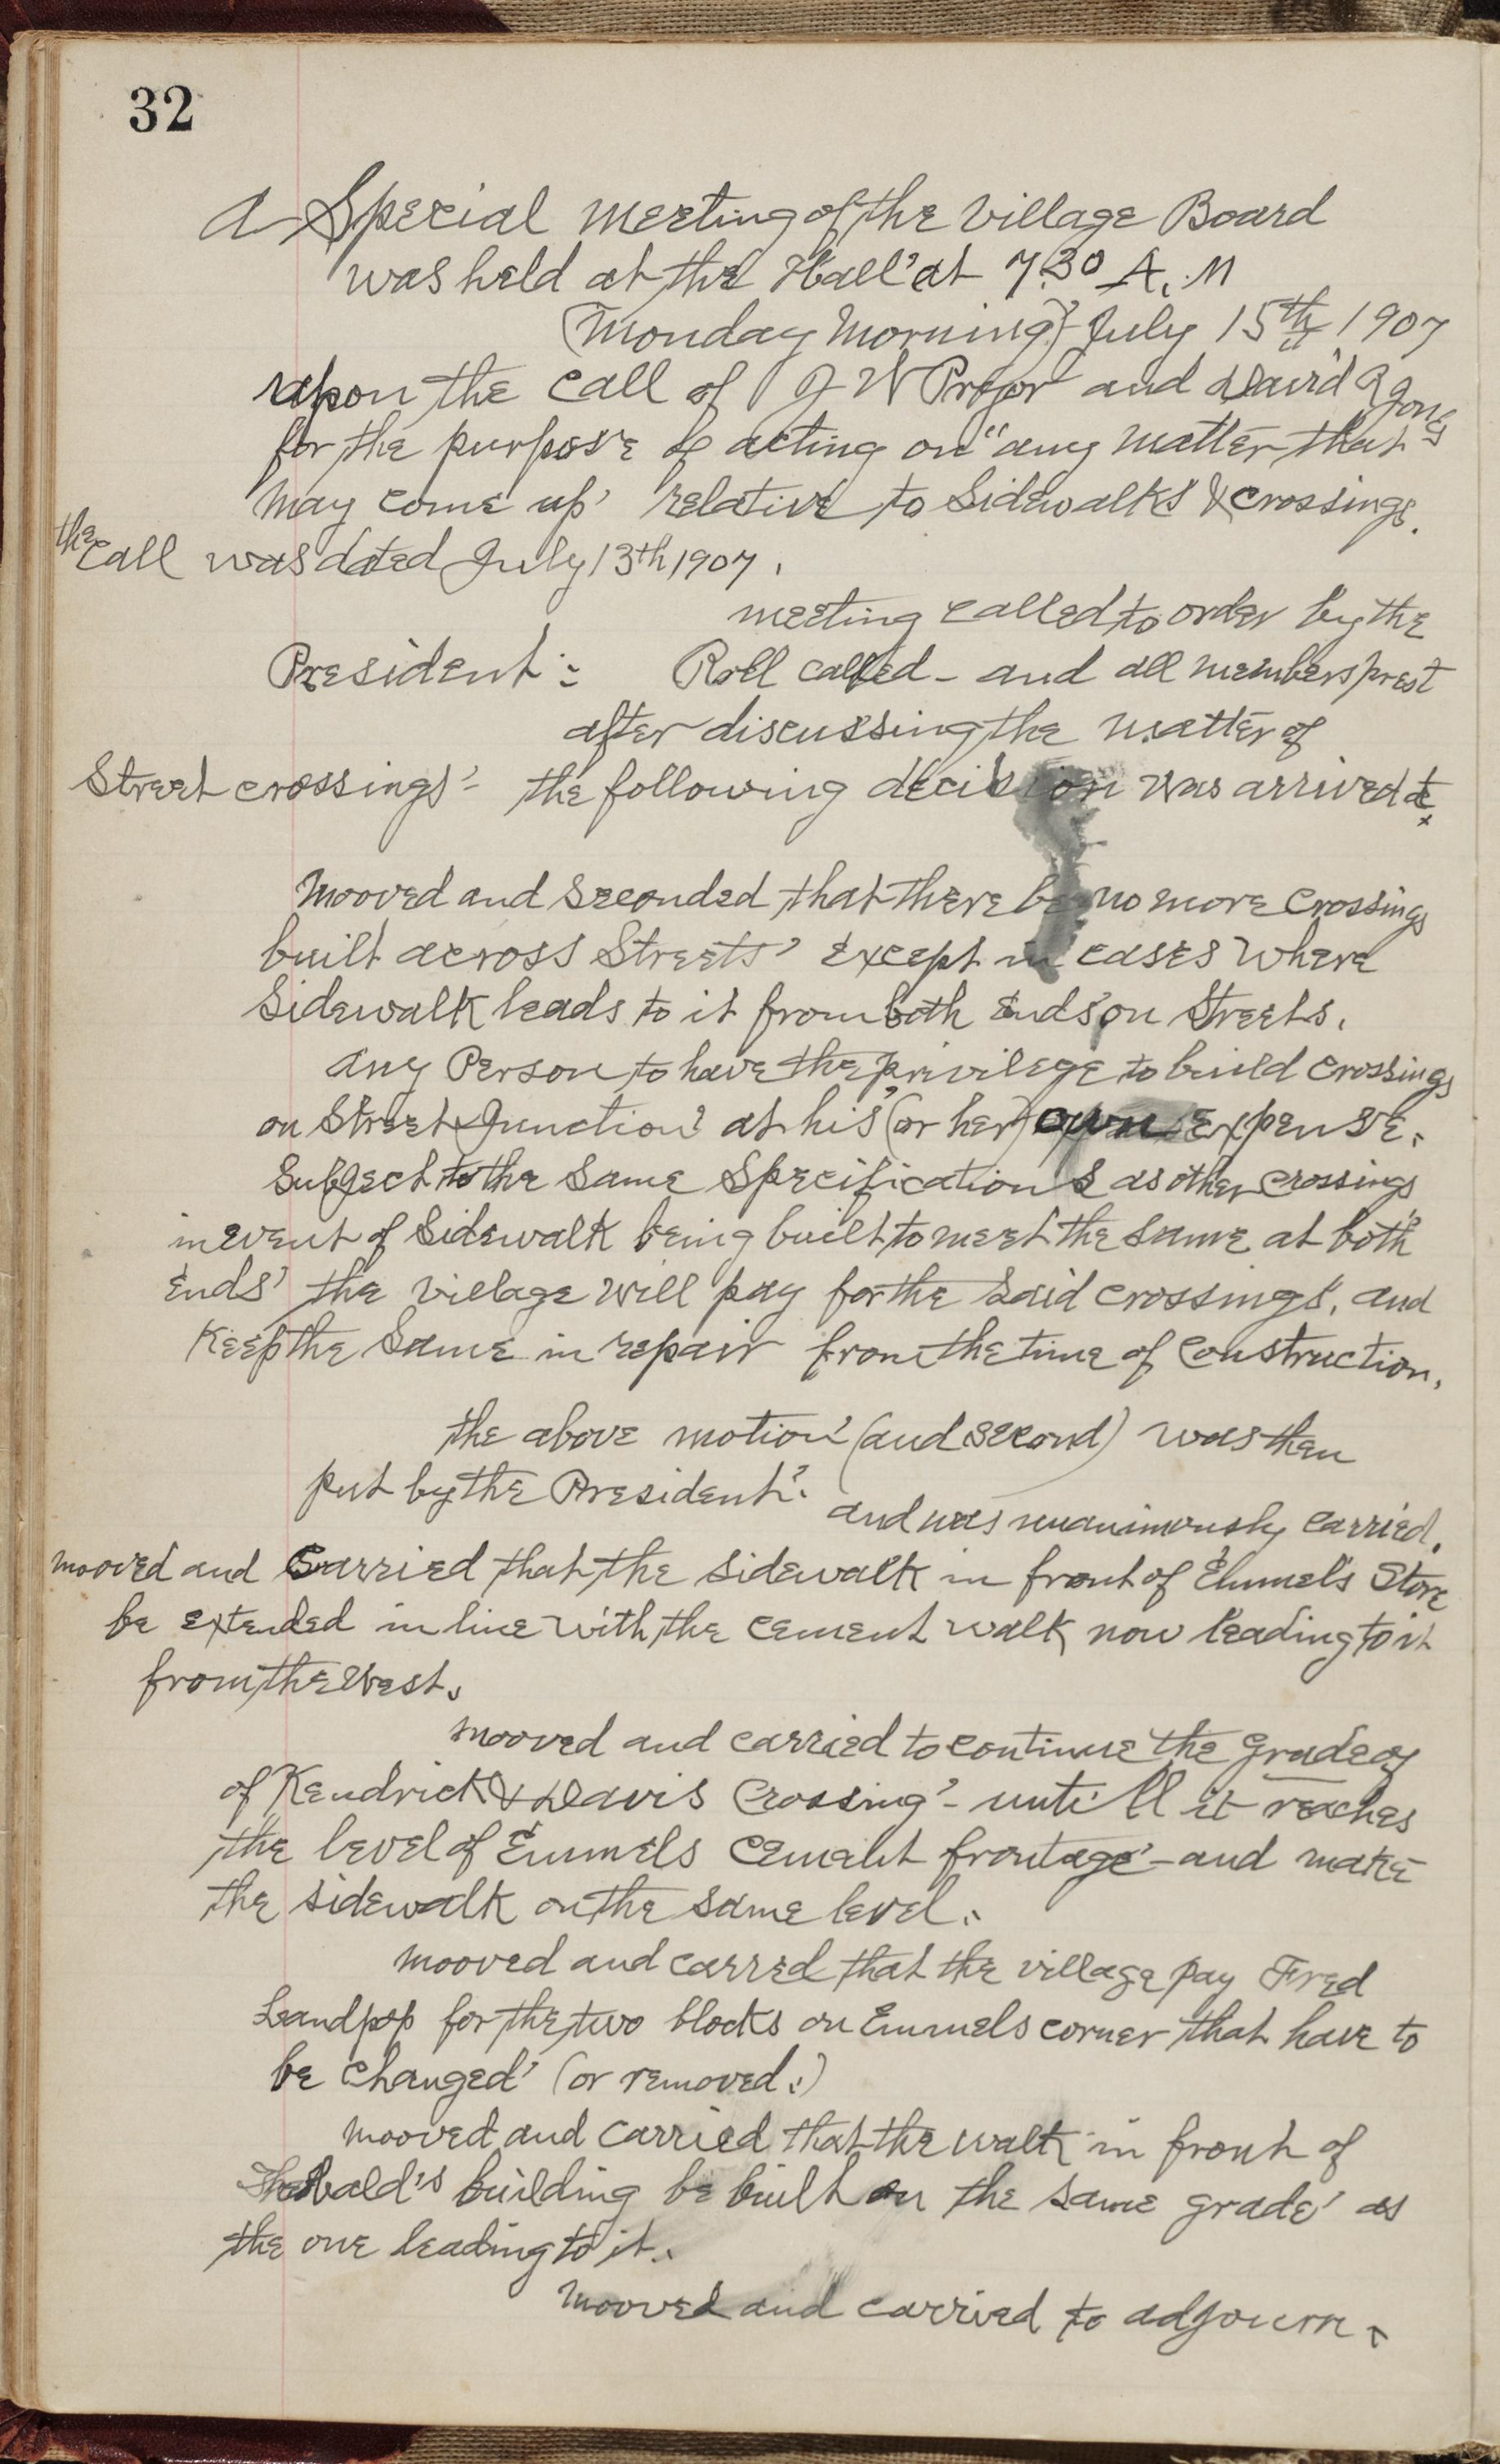 32
A Special meeting of the Village Board
was held at the Hall' at 7.30 A.M
(Monday Morning) July 15th 1907
upon the call of J W Pryor and David R Jones
for the purpose of acting on "any matter that
may come up' relative to Sidewalks & crossings.
the call was dated July 13th 1907.
meeting called to order by the
President:- Roll called - and all members prest
after discussing the matter of
Street crossings'- the following decision was arrived at.
Mooved and seconded that there be no more crossings
built across Streets' except in cases where
Sidewalk leads to it from both Ends' on Streets.
any Person to have the privilege to build crossings
on Street Junction' at his' (or her) own expense.
Subject to the same Specifications as other crossings
in event of Sidewalk being built to meet the same at both
Ends' the village will pay for the said crossings', and
Keep the Same in repair from the time of Construction.
the above motion' (and second) was then
put by the President'. and was unanimously carried.
mooved and carried that the sidewalk in front of Emmel's Store
be extended in line with the cement walk now leading to it
from the West.
mooved and carried to continue the grade of
of Kendrick & Davis Crossing'- untill it reaches
the level of Emmels Cement frontage'- and make
the sidewalk on the same level.
mooved and carred that the village pay Fred
for the two blocks on Emmels corner that have to
be changed' (or removed.)
mooved and carried that the walk in front of
building be built on the same grade' as
the one leading to it.
mooved and carried to adjourn.